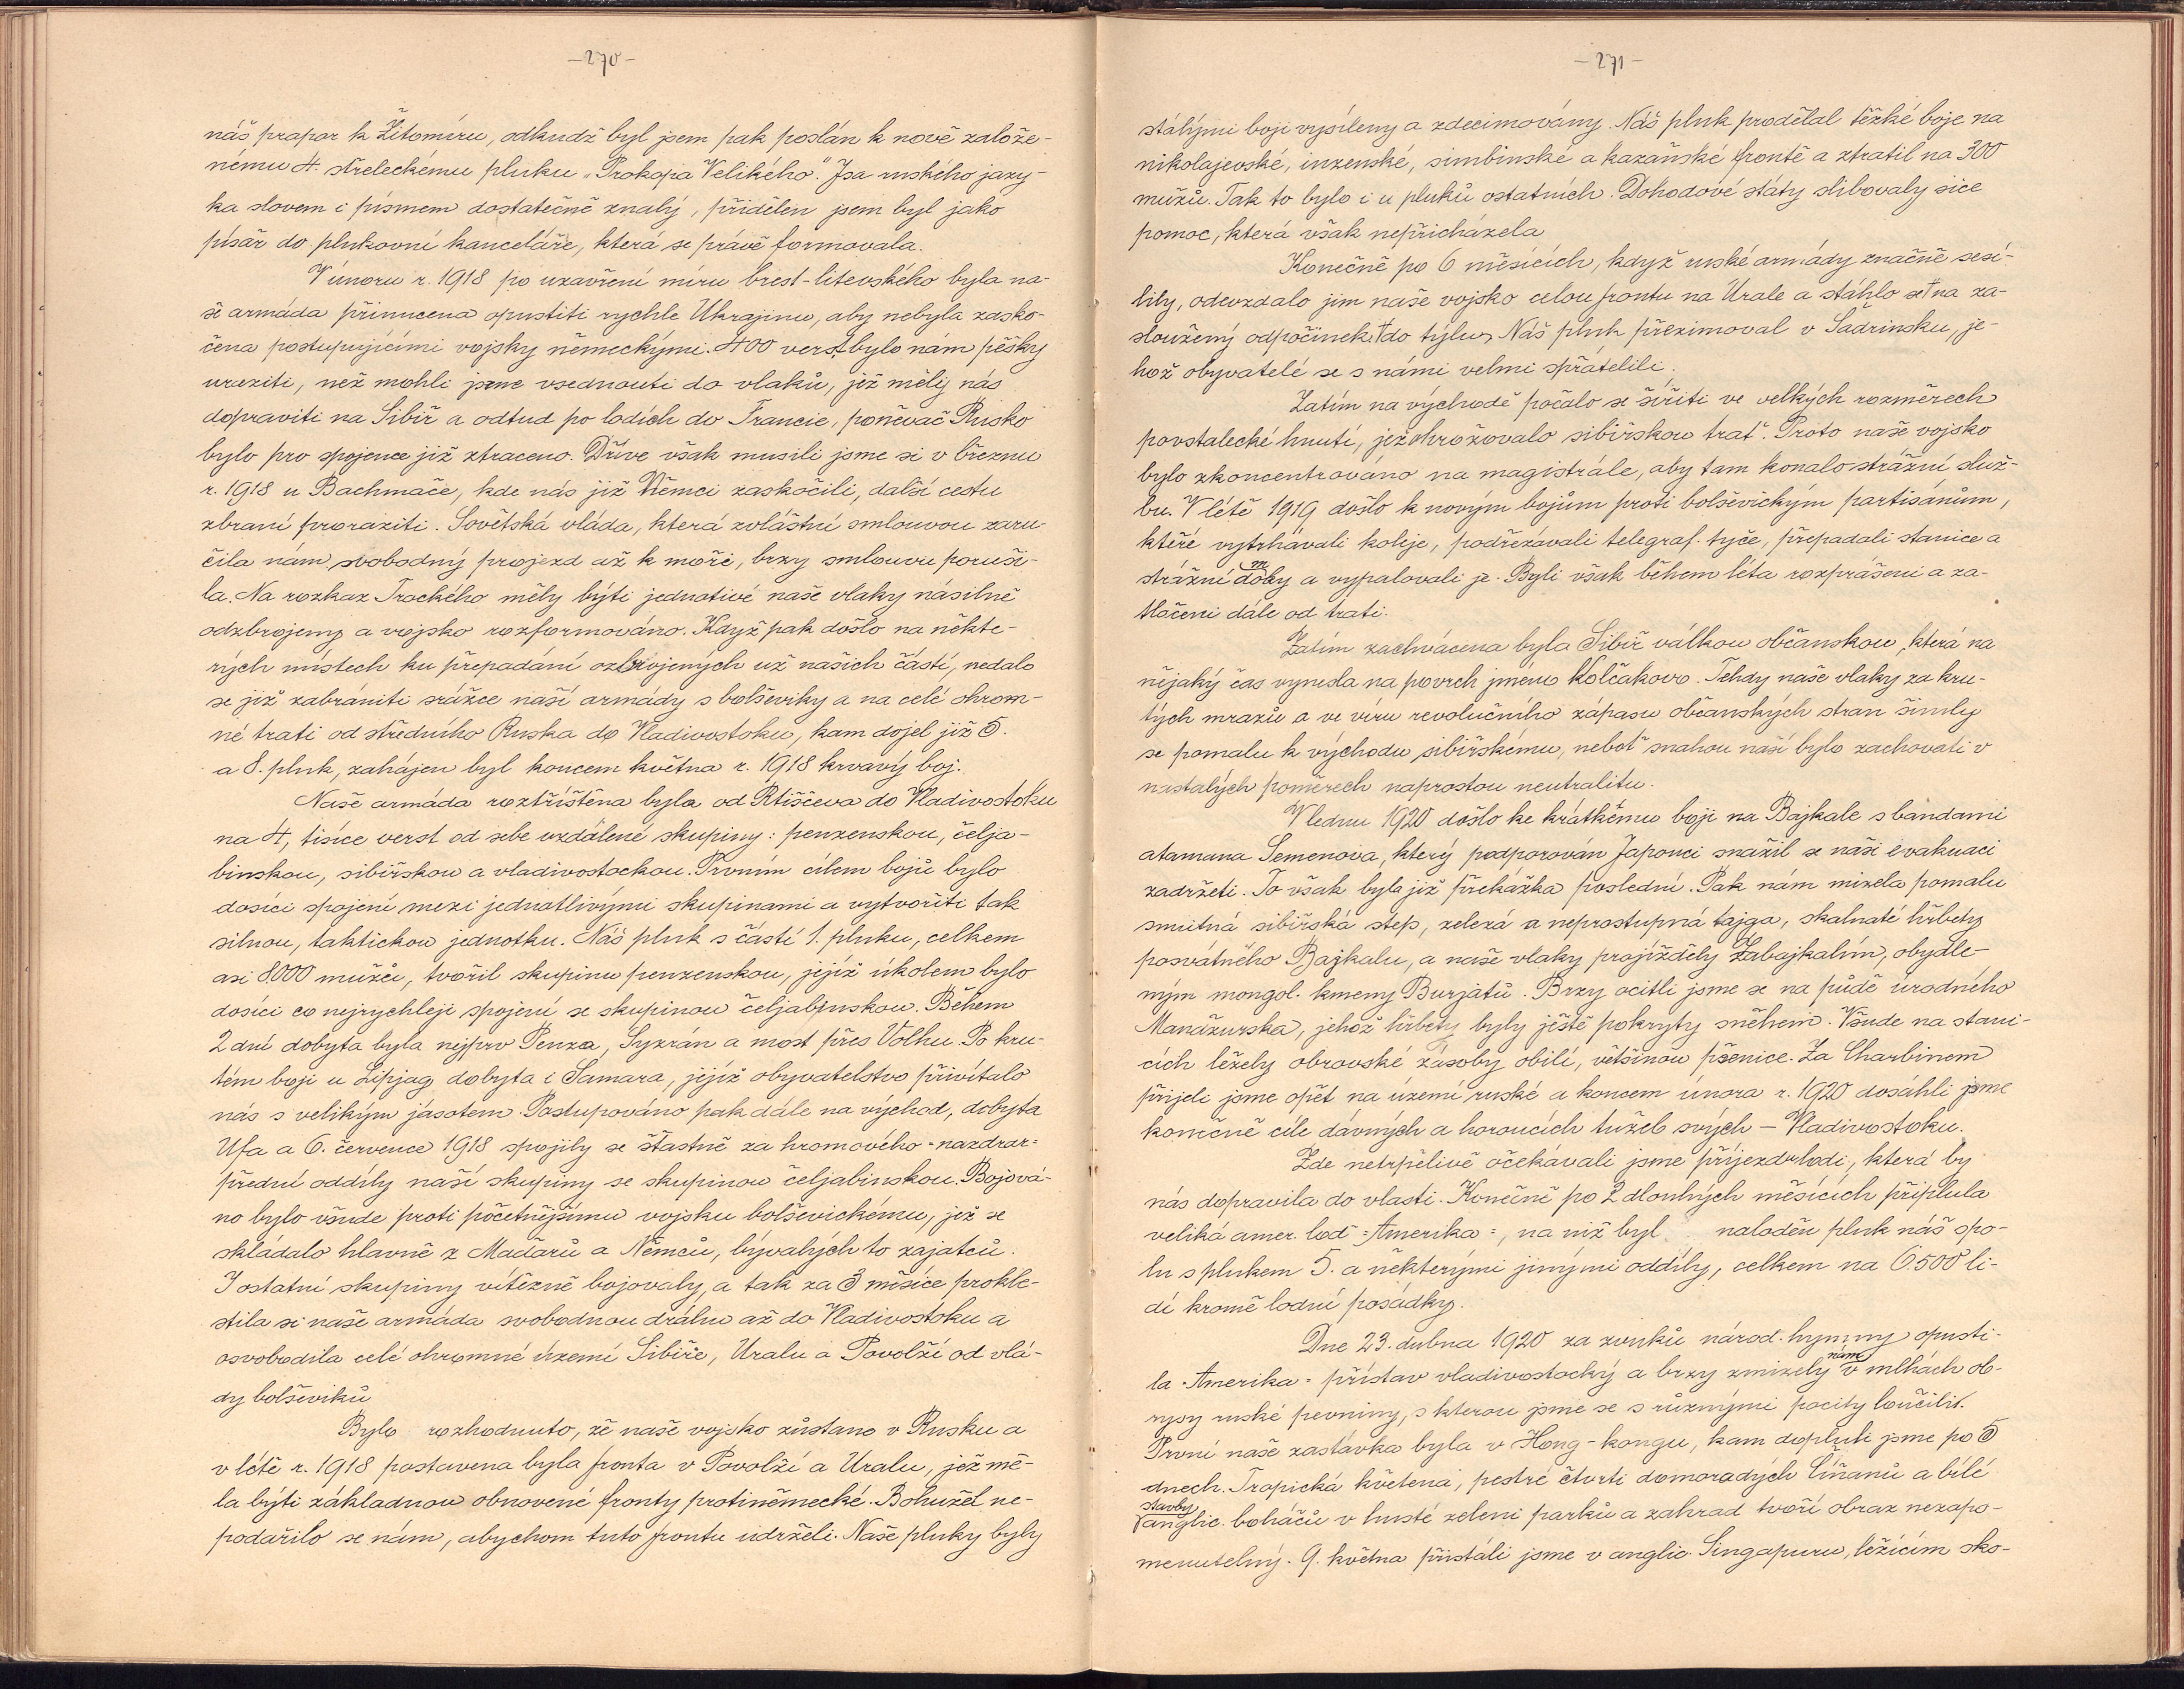 -270-
náš prapor k Žitomíru, odkudž byl jsem pak poslán k nově založe-
nému 4. střeleckému pluku „Prokopa Velikého". Jsa ruského jazy-
ka slovem i písmem dostatečně znalý, přidělen jsem byl jako
písař do plukovní kanceláře, která se právě formovala.
V únoru r. 1918 po uzavření míru brest-litevského byla na-
še armáda přinucena opustiti rychle Ukrajinu, aby nebyla zasko-
čena postupujícími vojsky německými. 400 verst bylo nám pěšky
uraziti, než mohli jsme vsednouti do vlaků, jež měly nás
dopraviti na Sibiř a odtud po lodích do Francie, poněvač Rusko
bylo pro spojence již ztraceno. Dříve však musili jsme si v březnu
r. 1918 u Bachmače, kde nás již Němci zaskočili, další cestu
zbraní proraziti. Sovětská vláda, která zvláštní smlouvou zaru-
čila nám svobodný projezd až k moři, brzy smlouvu poruši-
la. Na rozkaz Trockého měly býti jednativé naše vlaky násilně
odzbrojeny a vojsko rozformováno. Když pak došlo na někte-
rých místech ku přepadání ozbrojených už našich částí, nedalo
se již zabrániti srážce naší armády s bolševiky a na celé ohrom-
né trati od středního Ruska do Vladivostoku, kam dojel již 5.
a 8. pluk, zahájen byl koncem května r. 1918 krvavý boj.
Naše armáda roztříštěna byla od Rtiščeva do Vladivostoku
na 4, tisíce verst od sebe vzdálené skupiny: penzenskou, čelja-
binskou, sibiřskou a vladivostockou. Prvním cílem bojů bylo
dosíci spojení mezi jednotlivými skupinami a vytvořiti tak
silnou, taktickou jednotku. Náš pluk s částí 1. pluku, celkem
asi 8000 mužů, tvořil skupinu penzenskou, jejíž úkolem bylo
dosíci co nejrychleji spojení se skupinou čeljabinskou. Během
2 dní dobyta byla nejprv Penza, Syzráň a most přes Volhu. Po kru-
tém boji u Lipjag dobyta i Samara, jejíž obyvatelstvo přivítalo
nás s velikým jásotem. Postupováno pak dále na východ, dobyta
Ufa a 6. července 1918 spojily se šťastně za hromového "nazdrar"
přední oddíly naší skupiny se skupinou čeljabinskou. Bojová-
no bylo všude proti početnějšímu vojsku bolševickému, jež se
skládalo hlavně z Maďarů a Němců, bývalých to zajatců.
I ostatní skupiny vítězně bojovaly, a tak za 3 měsíce prokle-
stila si naše armáda svobodnou dráhu až do Vladivostoku a
osvobodila celé ohromné území Sibiře, Uralu a Povolží od vlá-
dy bolševiků
Bylo rozhodnuto, že naše vojsko zůstane v Rusku a
v létě r. 1918 postavena byla fronta v Povolží a Uralu, jež mě-
la býti základnou obnovené fronty protiněmecké. Bohužel ne-
podařilo se nám, abychom tuto frontu udrželi. Naše pluky byly
-271-
stálými boji vysíleny a zdecimovány. Náš pluk prodělal těžké boje na
nikolajevské, inzenské, simbinské a kazaňské frontě a ztratil na 300
mužů. Tak to bylo i u pluků ostatních. Dohodové státy slibovaly sice
pomoc, která však nepřicházela
Konečně po 6 měsících, když ruské armády značně sesí-
lily, odevzdalo jim naše vojsko celou frontu na Urale a stáhlo se na za-
sloužený odpočinek do týlu. Náš pluk přezimoval v Šadrinsku, je-
hož obyvatelé se s námi velmi spřátelili.
Zatím na východě počalo se šířiti ve velkých rozměrech
povstalecké hnutí, jež ohrožovalo sibiřskou trať. Proto naše vojsko
bylo zkoncentrováno na magistrále, aby tam konalo strážní služ-
bu. V létě 1919 došlo k novým bojům proti bolševickým partisánům,
kteří vytrhávali koleje, podřezávali telegraf. tyče, přepadali stanice a
strážní domy a vypalovali je. Byli však během léta rozprášeni a za-
tlačeni dále od trati.
Zatím zachvácena byla Sibiř válkou občanskou, která na
nějaký čas vynesla na povrch jméno Kolčakovo. Tehdy naše vlaky za kru-
tých mrazů a ve víru revolučního zápasu občanských stran šinuly
se pomalu k východu sibiřskému, neboť snahou naší bylo zachovati v
nastalých poměrech naprostou neutralitu.
V lednu 1920 došlo ke krátkému boji na Bajkale s bandami
atamana Semenova, který podporován Japonci snažil se naši evakuaci
zadržeti. To však byla již překážka poslední. Pak nám mizela pomalu
smutná sibiřská step, zelená a neprostupná tajga, skalnaté hřbety
posvátného Bajkalu, a naše vlaky projížděly Zabajkalím, obydle-
ným mongol. kmeny Burjatů. Brzy ocitli jsme se na půdě úrodného
Manžurska, jehož hřbety byly ještě pokryty sněhem. Všude na stani-
cích ležely obrovské zásoby obilí, většinou pšenice. Za Charbinem
přijeli jsme opět na území ruské a koncem února r. 1920 dosáhli jsme
konečně cíle dávných a horoucích tužeb svých - Vladivostoku.
Zde netrpělivě očekávali jsme příjezdu lodi, která by
nás dopravila do vlasti. Konečně po 2 dlouhých měsících připlula
veliká amer. loď "Amerika", na niž byl naloděn pluk náš spo-
lu s plukem 5. a některými jinými oddíly, celkem na 6.500 li-
dí kromě lodní posádky.
Dne 23. dubna 1920 za zvuků národ. hymny opusti-
la "Amerika" přístav vladivostocký a brzy zmizely nám v mlhách ob-
rysy ruské pevniny, s kterou jsme se s různými pocity loučili.
První naše zastávka byla v Hong-kongu, kam dopluli jsme po 5
dnech. Tropická květena, pestré čtvrti domorodých Číňanů a bílé
stavby anglic. boháčů v husté zeleni parků a zahrad tvoří obraz nezapo-
menutelný. 9. května přistáli jsme v anglic. Singapuru, ležícím sko-